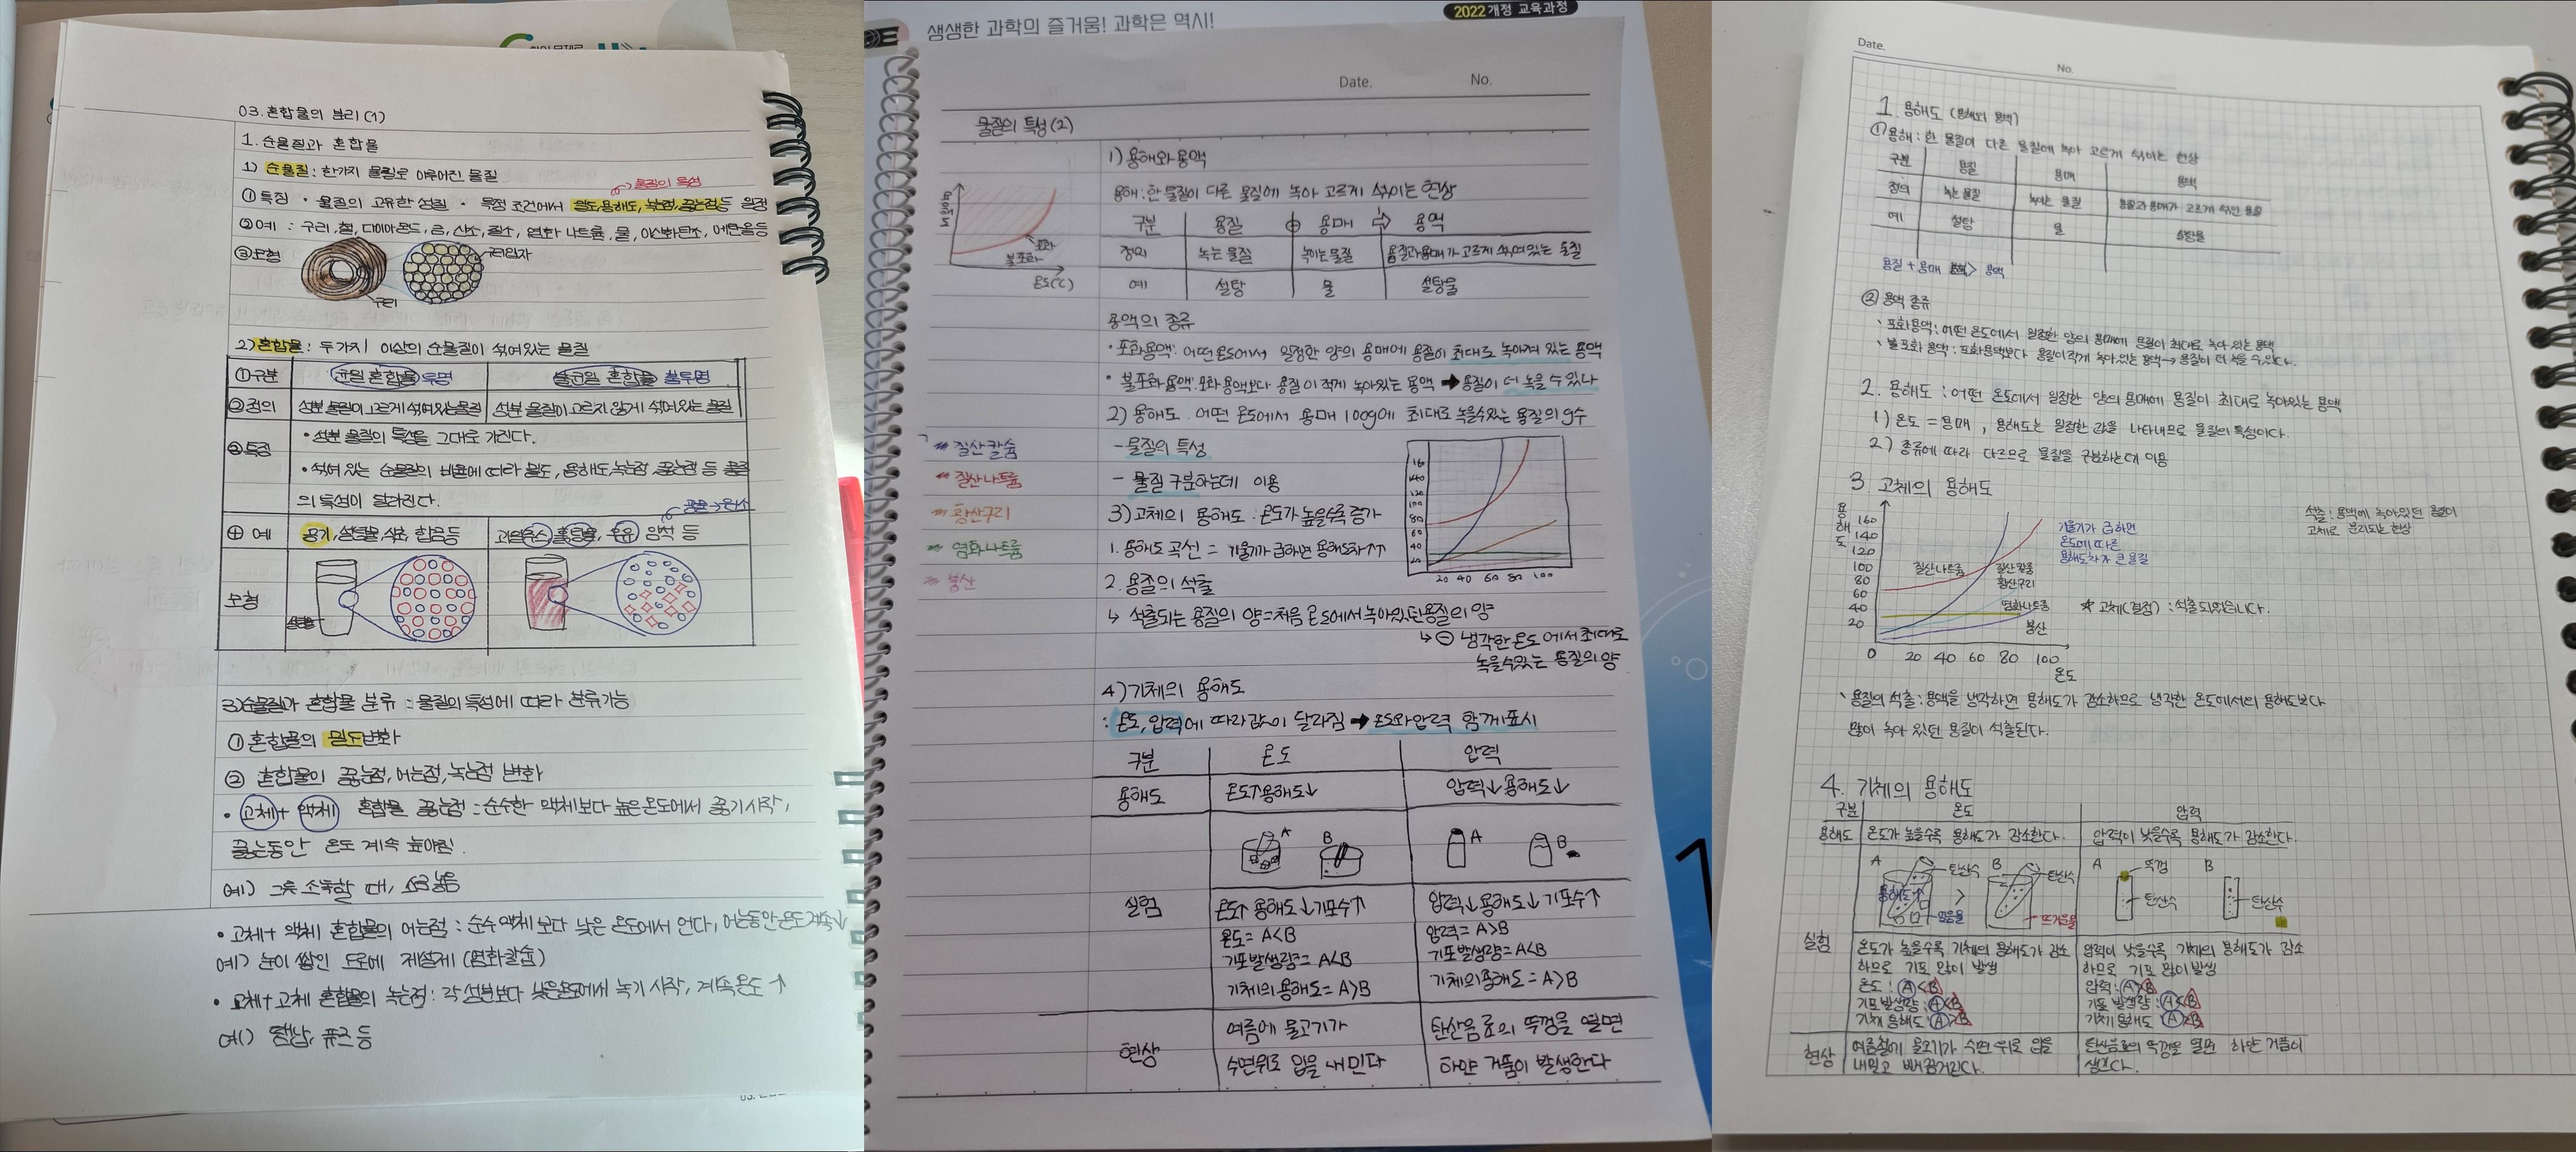 03. 혼합물의 분리(1)
1. 순물질과 혼합물
1) 순물질: 한가지 물질로 이루어진 물질
→물질의 특성
① 특징 • 물질의 고유한 성질 • 특정 조건에서 밀도, 용해도, 녹는점, 끓는점 등 일정
② 예 : 구리, 철, 다이아몬드, 금, 산소, 질소, 염화 나트륨, 물, 이산화탄소, 에탄올등
③ 모형
구리입자
구리
2) 혼합물: 두가지 이상의 순물질이 섞여있는 물질
① 구분 균일 혼합물 투명 불균일 혼합물 불투명
② 정의 성분 물질이 고르게 섞여있는물질 성분 물질이 고르지 않게 섞여있는 물질
③ 특징 • 성분 물질의 특성을 그대로 가진다.
• 섞여 있는 순물질의 비율에 따라 밀도, 용해도, 녹는점, 끓는점 등 물질
의 특성이 달라진다.
④ 예 공기, 설탕물, 식초, 합금등 과일주스, 흙탕물, 우유, 암석 등
모형
설탕물
3) 순물질과 혼합물 분류 : 물질의 특성에 따라 분류가능
① 혼합물의 밀도변화
② 혼합물의 끓는점, 어는점, 녹는점 변화
• 고체 + 액체 혼합물 끓는점 : 순수한 액체보다 높은온도에서 끓기시작,
끓는동안 온도 계속 높아짐.
예) 소독할 때,
• 고체+ 액체 혼합물의 어는점 : 순수 액체 보다 낮은 온도에서 언다, 어는동안온도계속↓
예) 눈이 쌓인 도로에 제설제 (염화칼슘)
• 고체+고체 혼합물의 녹는점: 각 성분보다 낮은온도에서 녹기 시작, 계속온도 ↑
예) 땜납, 퓨즈 등
생생한 과학의 즐거움! 과학은 역시!
2022개정 교육과정
Date. No.
물질의 특성(2)
1) 용해와 용액
용해: 한 물질이 다른 물질에 녹아 고르게 섞이는 현상
구분 용질 + 용매 ⇨ 용액
정의 녹는 물질 녹이는 물질 용질과용매가 고르게 섞여있는 물질
예 설탕 물 설탕물
용해도
포화
불포화
온도(℃)
용액의 종류
• 포화용액: 어떤온도에서 일정한 양의 용매에 용질이 최대로 녹아져 있는 용액
• 불포화용액: 포화용액보다 용질이 적게 녹아있는 용액 ➡ 용질이 더 녹을 수 있다
2) 용해도. 어떤 온도에서 용매 100g에 최대로 녹을수있는 용질의 g수
질산 칼륨
질산나트륨
황산구리
염화나트륨
붕산
- 물질의 특성
- 물질 구분하는데 이용
3) 고체의 용해도 : 온도가 높을수록 증가
1. 용해도 곡선 = 기울기가 급하면 용해도차↑↑
2. 용질의 석출
↳ 석출되는 용질의 양=처음 온도에서 녹아있던용질의 양
↳ ⊖ 냉각한온도에서 최대로
녹을수있는 용질의 양
160
140
120
100
80
60
40
20
20 40 60 80 100
4) 기체의 용해도
: 온도, 압력에 따라값이 달라짐 ➡ 온도와압력 함께표시
구분 온도 압력
용해도 온도↑용해도↓ 압력↓용해도↓
A B A B
실험 온도↑ 용해도↓기포수↑ 압력↓용해도↓기포수↑
온도= A<B 압력= A>B
기포발생량= A<B 기포발생량=A<B
기체의용해도=A>B 기체의용해도=A>B
현상 여름에 물고기가 탄산음료의 뚜껑을 열면
수면위로 입을 내민다 하얀 거품이 발생한다
Date.
No.
1. 용해도
① 용해: 한 물질이 다른 물질에 녹아 고르게 섞이는 현상
구분 용질 용매 용액
정의 녹는물질 녹이는 물질 용질과용매가 고르게 섞인 물질
예 설탕 물 설탕물
용질 + 용매 > 용액
② 용액 종류
포화용액: 어떤 온도에서 일정한 양의 용매에 용질이 최대로 녹아 있는 용액
불포화 용액 : 포화용액보다 용질이적게 녹아있는 용액→ 용질이 더 녹을 수 있다.
2. 용해도 : 어떤 온도에서 일정한 양의 용매에 용질이 최대로 녹아있는 용액
1) 온도 = 용매, 용해도는 일정한 값을 나타내므로 물질의 특성이다.
2) 종류에 따라 다르므로 물질을 구분하는데 이용
3. 고체의 용해도
용해도
160
140
120
100
80
60
40
20
0 20 40 60 80 100
온도
질산나트륨
질산칼륨
황산구리
염화나트륨
붕산
기울기가 급하면
온도에따른
용해도차가 큰 물질
석출: 용액에 녹아있던 용질이
고체로 분리되는 현상
☆ 고체(결정) : 석출되었습니다.
용질의 석출: 용액을 냉각하면 용해도가 감소하므로 냉각한 온도에서의 용해도보다
많이 녹아 있던 용질이 석출된다.
4. 기체의 용해도
구분 온도 압력
용해도 온도가 높을수록 용해도가 감소한다. 압력이 낮을수록 용해도가 감소한다.
A 탄산수 B 탄산수 A 뚜껑 B
용해도↑ > 탄산수 탄산수
얼음물 뜨거운물
실험 온도가 높을수록 기체의 용해도가 감소 압력이 낮을수록 기체의 용해도가 감소
하므로 기포 많이 발생 하므로 기포 많이 발생
온도 : A<B 압력: A>B
기포발생량: A<B 기포 발생량: A<B
기체 용해도: A>B 기체 용해도: A>B
현상 여름철에 물고기가 수면 위로 입을 탄산음료의 뚜껑을 열면 하얀 거품이
내밀고 뻐끔거린다. 생긴다.